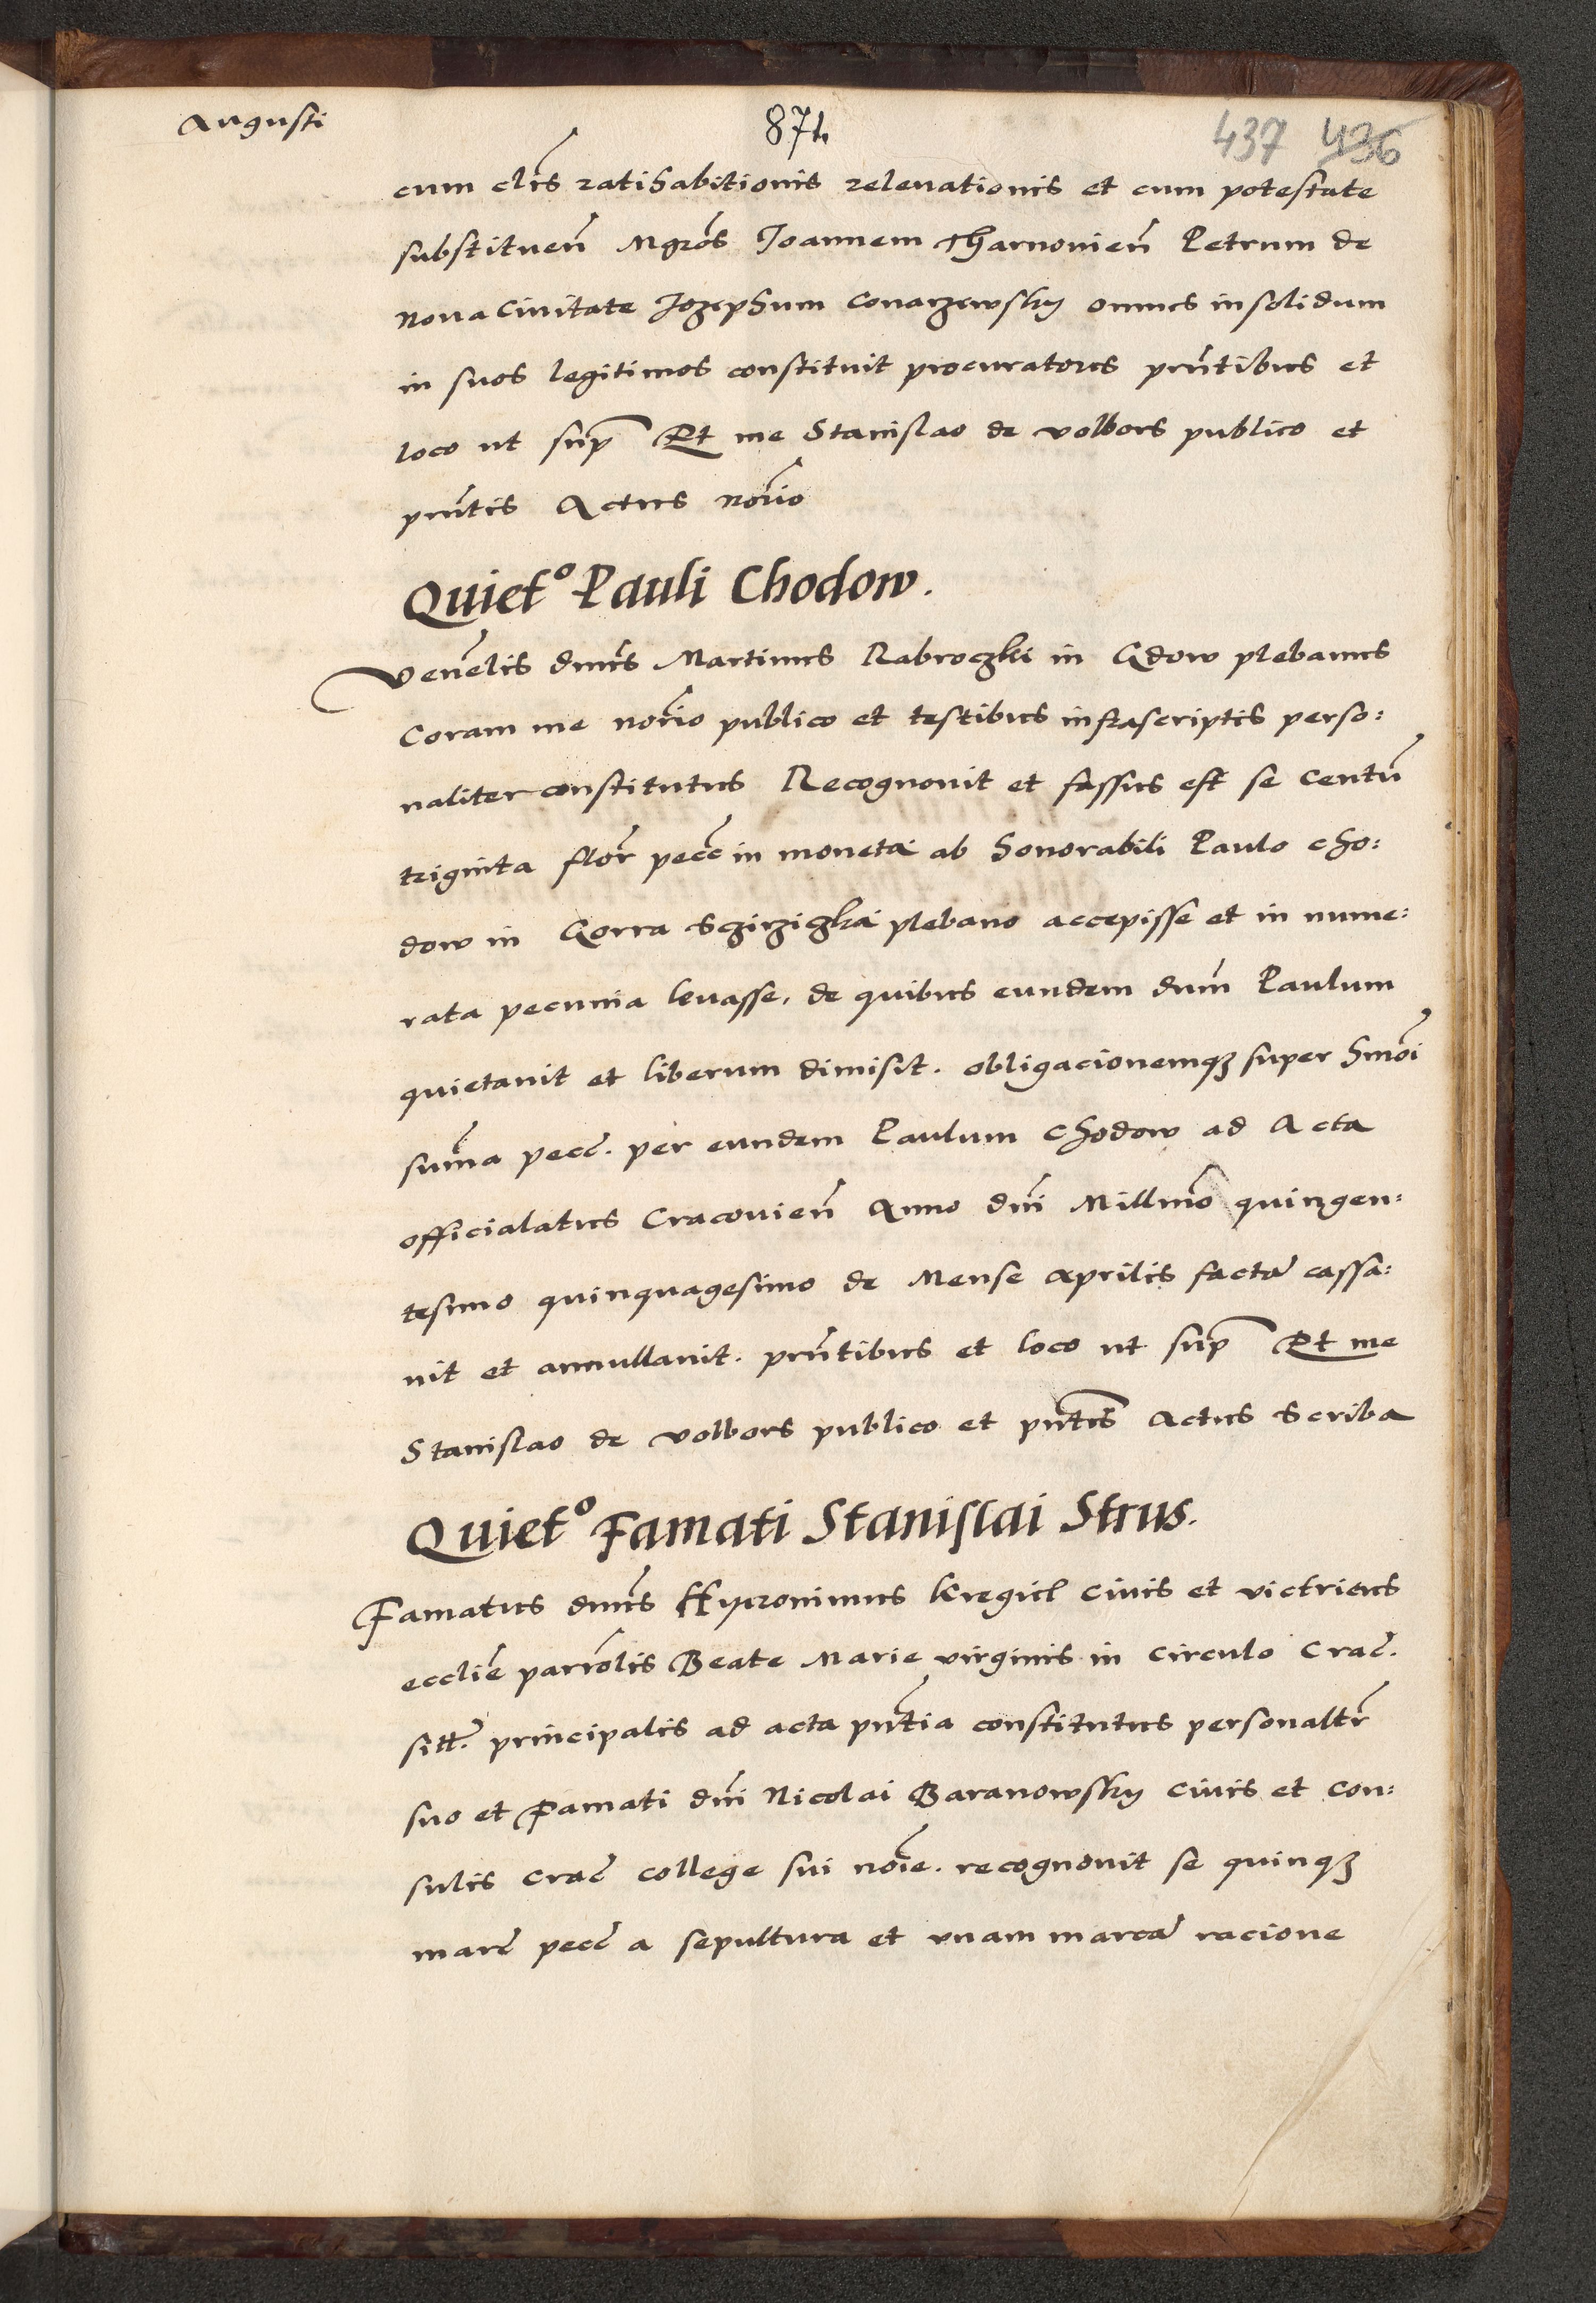 Augusti
871.
437 436
cum clis ratihabitionis relevationis et cum potestate
substituen Mgros Joannem Tharnovien Petrum de
Nova Civitate Jozephum Conarzewsky omnes insolidum
in suos legitimos constituit procuratores pntibus et
loco ut sup Et me Stanislao de Volbors publico et
pntis Actus notrio
Quiet° Pauli Chodow.
Venelis dnus Martinus Rabroczki in Gdow plebanus
Coram me notrio publico et testibus infrascriptis perso:
naliter constitutus Recognovit et fassus est se Centu
triginta flor pecc in moneta ab honorabili Paulo Cho:
dow in Gorra plebano accepisse et in nume:
rata pecunia levasse, de quibus eundem dnm Paulum
quietavit et liberum dimisit. obligacionemqz super hmoi
suma pecc. per eundem Paulum Chodow ad Acta
officialatus Cracovien Anno dni Millmo quingen:
tesimo quinquagesimo de Mense Aprilis facta cassa:
vit et annullavit. pntibus et loco ut sup Et me
Stanislao de Volbors publico et pntis Actus Scriba
Quiet° Famati Stanislai Strus.
Famatus dnus Hyeronimus Kregiel Civis et victricus
ecclie parrolis Beate Marie virginis in Circulo Crac.
sitt. principalis ad acta pntia constitutus personaltr
suo et Famati dni Nicolai Baranowsky Civis et Con:
sulis Crac college sui noie. recognovit se quinqz
marc pecc a sepultura et unam marca racione